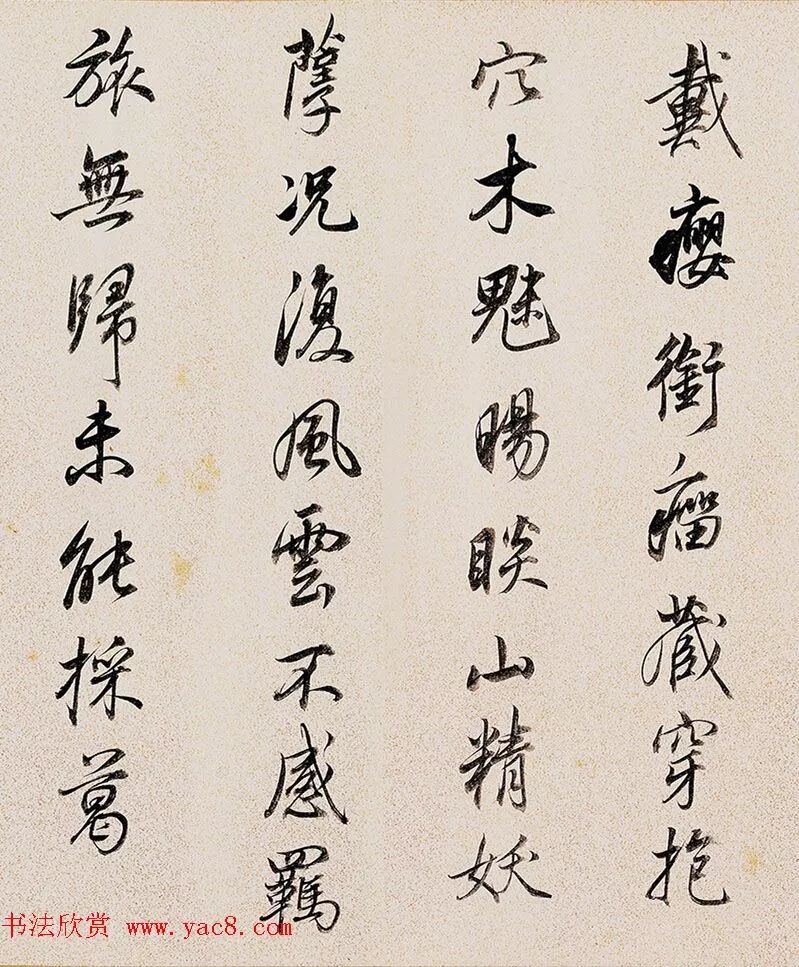 戴癭銜瘤藏穿抱
穴木魅睗睒山精妖
孽况復風雲不感羈
旅無歸未能採葛
书法欣赏 www.yac8.com